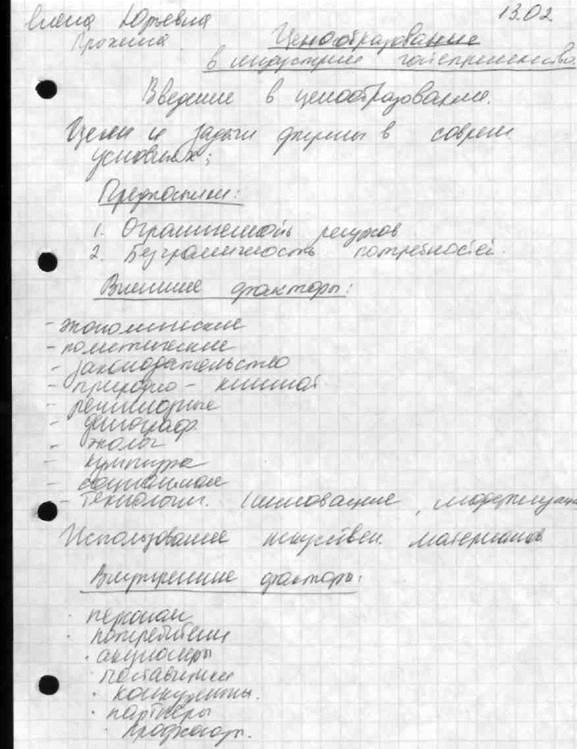 Елена Юрьевна 13.02
Прохина Ценообразование
в индустрии гостеприимства
Введение в ценообразование.
Цели и задачи фирмы в соврем
условиях:
Предпосылки:
1. Ограниченность ресурсов
2. Безграничность потребностей.
Внешние факторы:
- экономические
- политические
- законодательство
- природно - климат
- религиозные
- демограф
- эколог
- культура
- социальные
- технологич. (инновацие, модернизация
Использование искуствен. материалов
Внутренние факторы:
· персонал
· потребители
· акционеры
· поставщики
· конкуренты.
· партнёры
· профсоюзы.